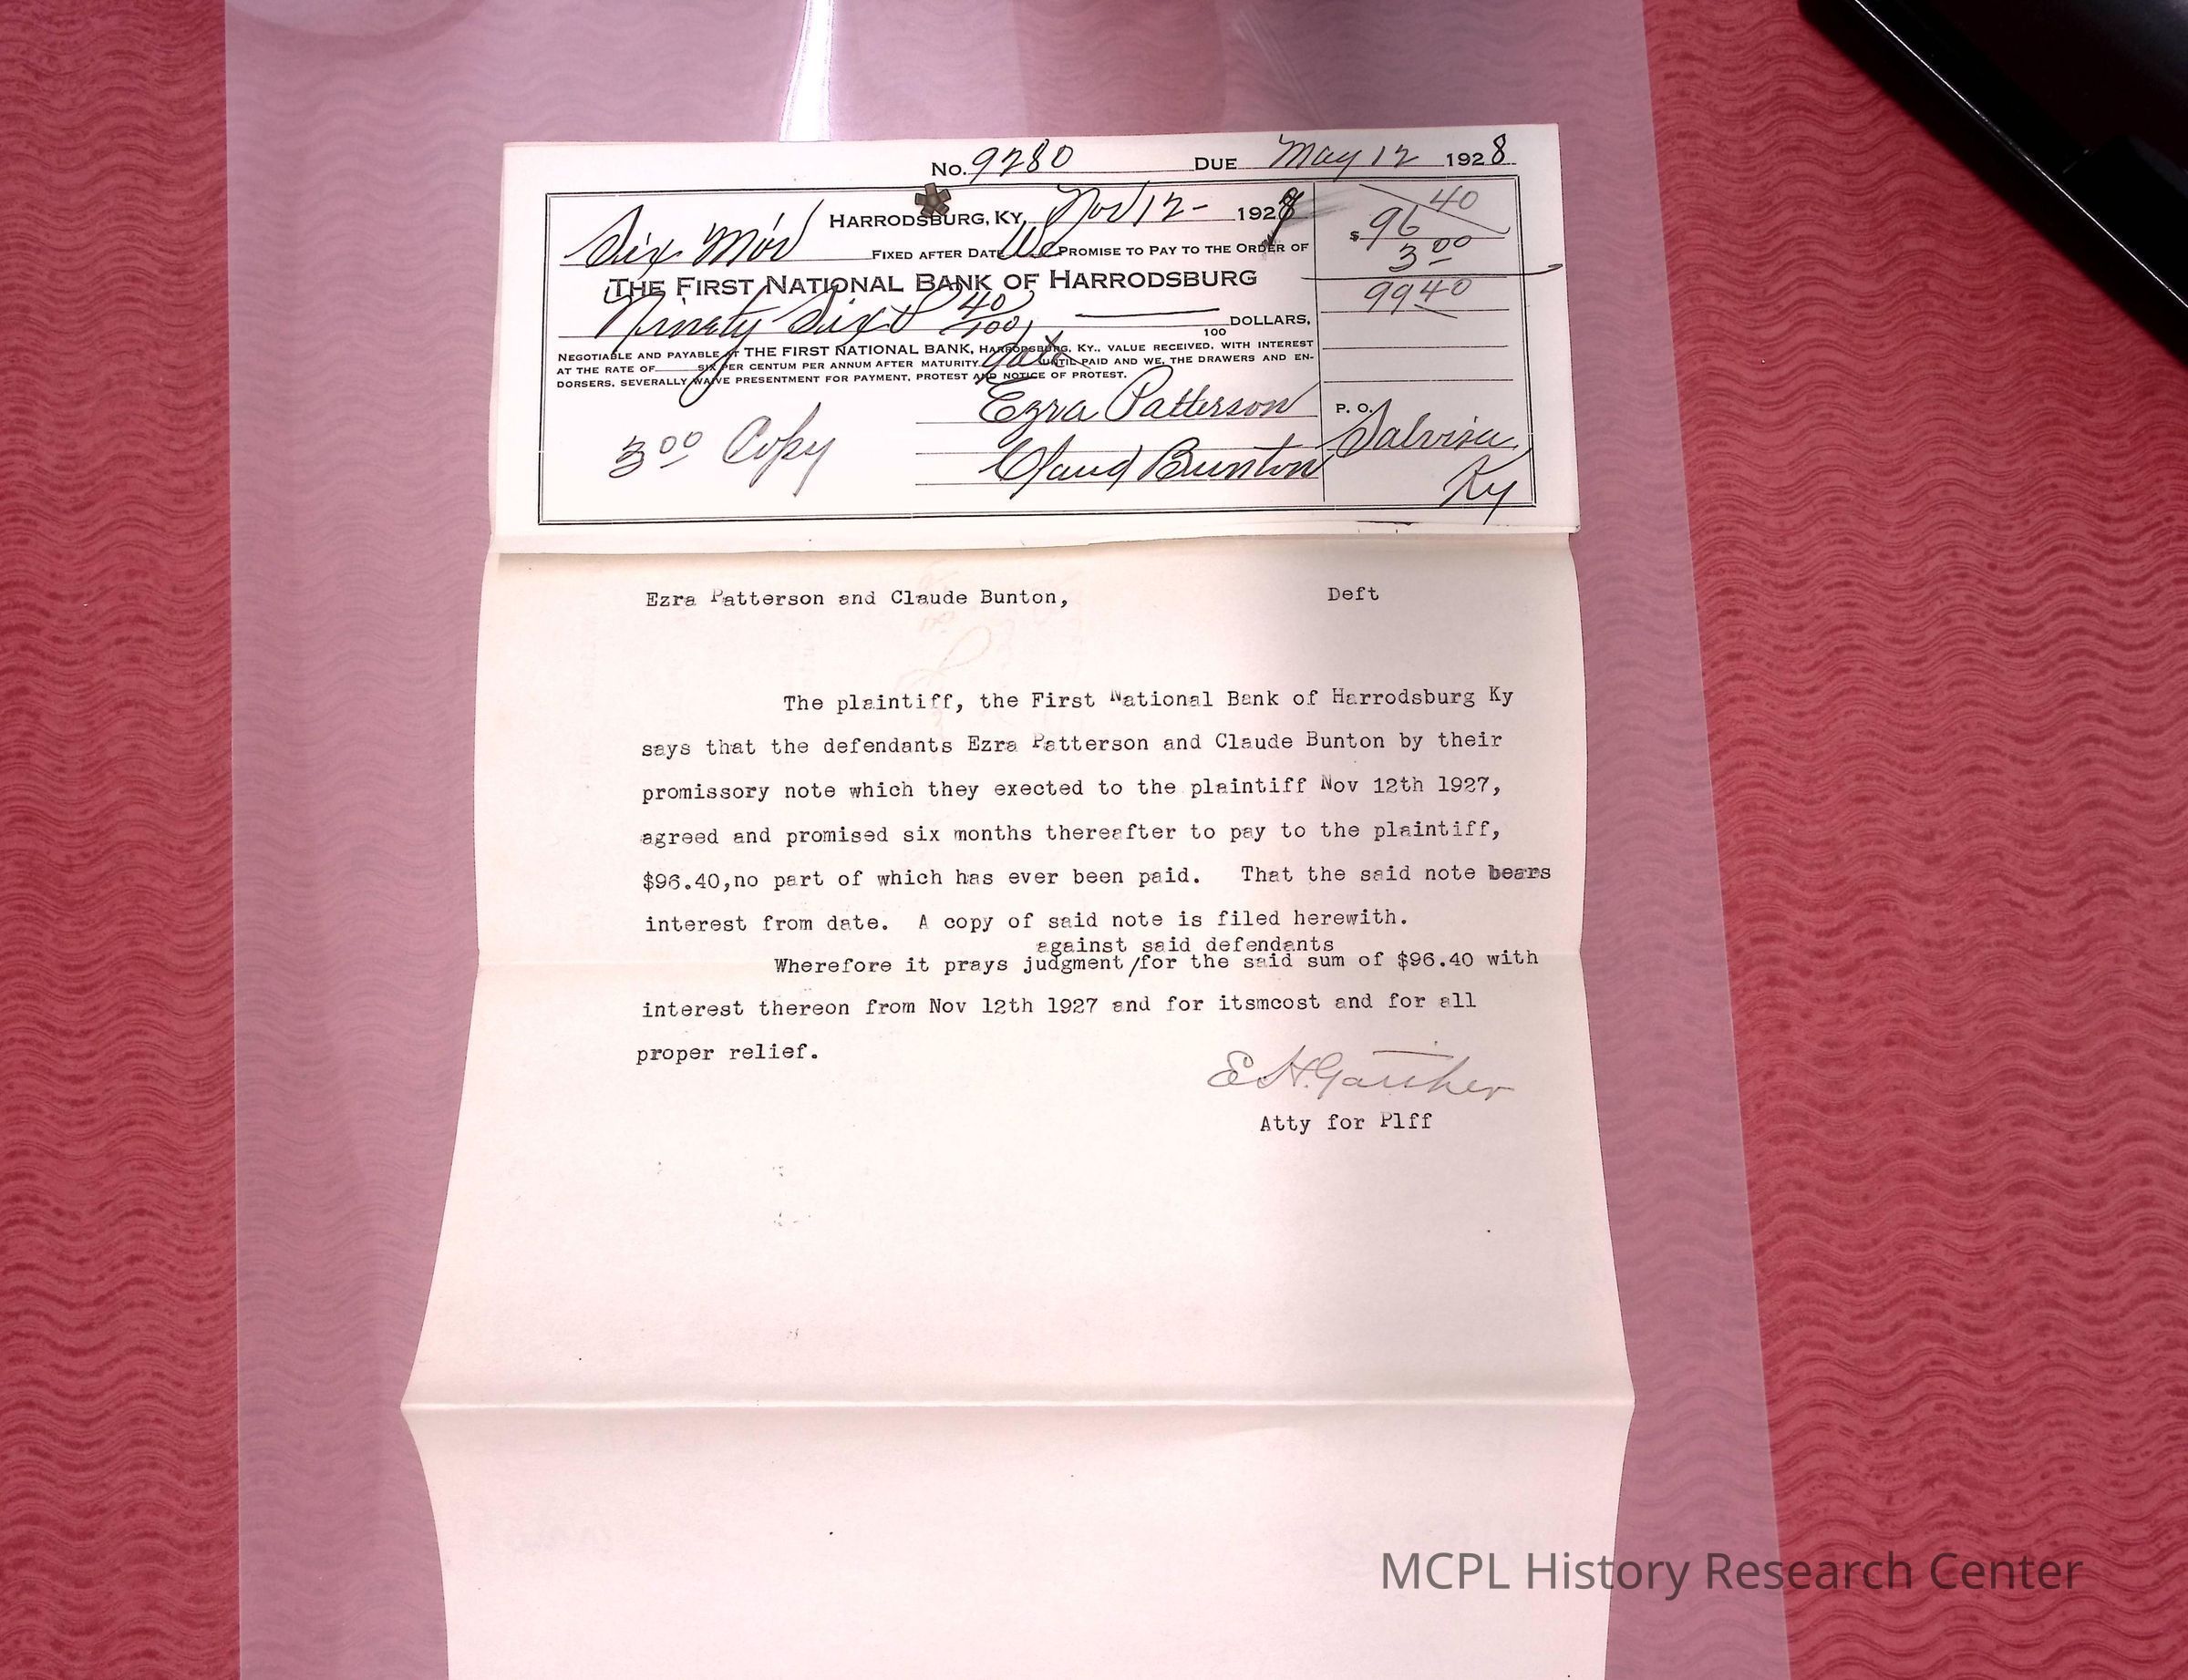 No. 9280 DUE May 12 1928
HARRODSBURG, KY, Nov 12- 1927
Six Mos FIXED AFTER DATE We PROMISE TO PAY TO THE ORDER OF
THE FIRST NATIONAL BANK OF HARRODSBURG
Ninety Six & 40/100 DOLLARS,
100
NEGOTIABLE AND PAYABLE AT THE FIRST NATIONAL BANK, HARRODSBURG, KY., VALUE RECEIVED, WITH INTEREST
AT THE RATE OF SIX PER CENTUM PER ANNUM AFTER MATURITY date UNTIL PAID AND WE, THE DRAWERS AND EN-
DORSERS, SEVERALLY WAIVE PRESENTMENT FOR PAYMENT, PROTEST AND NOTICE OF PROTEST.
$ 96 40
3 00
99 40
Ezra Patterson
3 00 Copy Claud Bunton
P. O. Salvisa
Ky
Ezra Patterson and Claude Bunton, Deft
The plaintiff, the First National Bank of Harrodsburg Ky
says that the defendants Ezra Patterson and Claude Bunton by their
promissory note which they exected to the plaintiff Nov 12th 1927,
agreed and promised six months thereafter to pay to the plaintiff,
$96.40,no part of which has ever been paid. That the said note bears
interest from date. A copy of said note is filed herewith.
against said defendants
Wherefore it prays judgment/for the said sum of $96.40 with
interest thereon from Nov 12th 1927 and for itsmcost and for all
proper relief.
E H. Gaither
Atty for Plff
MCPL History Research Center